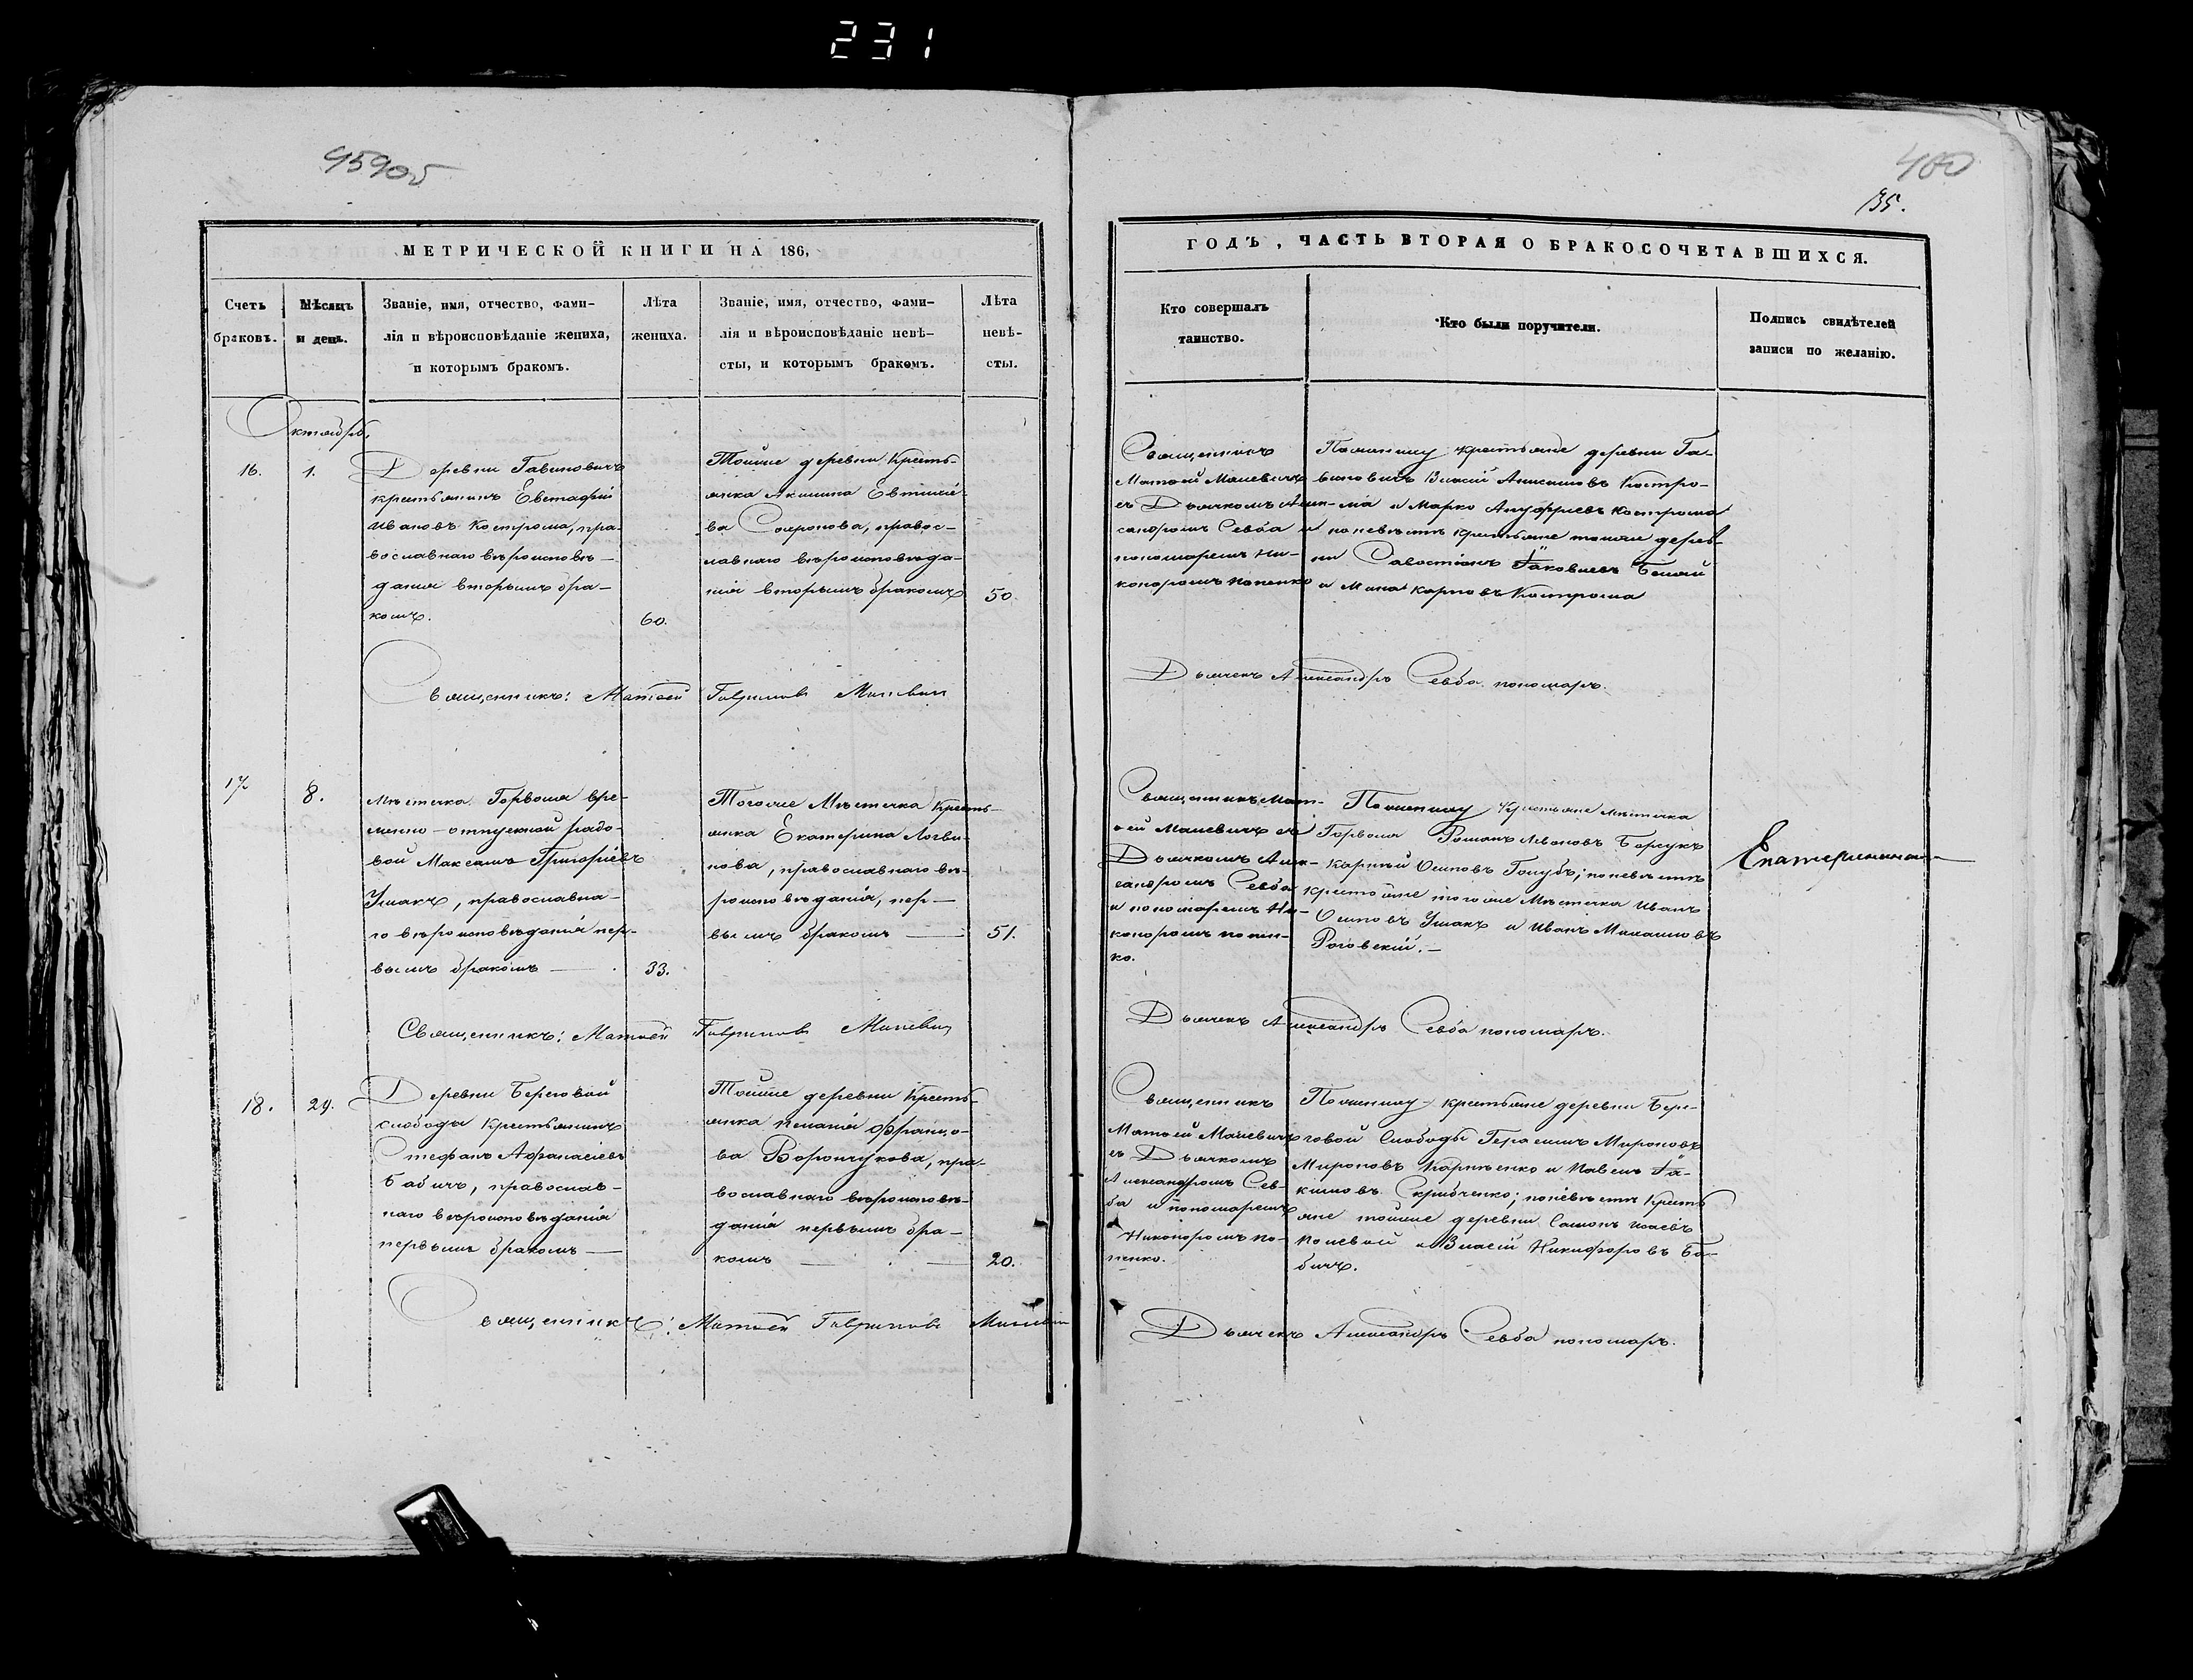 231
95905
400
135.
МЕТРИЧЕСКОЙ КНИГИ НА 186,
Счетъ
браковъ.
Мѣсяцъ
и день.
Званіе, имя, отчество, фами-
лія и вѣроисповѣданіе жениха,
и которымъ бракомъ.
Лѣта
жениха.
Званіе, имя, отчество, фами-
лія и вѣроисповѣданіе невѣ-
сты, и которымъ бракомъ.
Лѣта
невѣ-
сты.
ГОДЪ, ЧАСТЬ ВТОРАЯ О БРАКОСОЧЕТАВШИХСЯ.
Кто совершалъ
таинство.
Кто были поручители.
Подпись свидѣтелей
записи по желанію.
Октябрь
16.
1.
Деревни Гавиновичъ
крестьянинъ Евстафій
Ивановъ Кострома, пра-
вославнаго вѣроисповѣ-
данія вторымъ бра-
комъ.
60.
Тойже деревни кресть-
янка Акилина Евтихіе-
ва Сафонова, правос-
лавнаго вѣроисповѣда-
нія вторымъ бракомъ
50.
Священникъ
Матѳей Малевичъ
съ Дьячкомъ Алек-
сандромъ Севба и
пономаремъ Ни-
каноромъ Попенко
По жениху крестьяне деревни Га-
виновичъ Власій Анисимовъ Костро-
ма и Марко Ануфріевъ Кострома
и по невѣстѣ крестьяне тойже дерев-
ни Савостіянъ Яковлевъ Бѣлый
и Мина Карповъ Кострома
Священникъ: Матѳей Гавриловъ Малевич
Дьячекъ Александръ Севба пономарь.
17.
8.
Мѣстечка Горволя вре-
менно-отпускной рядо-
вой Максимъ Григоріевъ
Ушакъ, православна-
го вѣроисповѣданія пер-
вымъ бракомъ
33.
Тогоже Мѣстечка кресть-
янка Екатерина Логви-
нова, православнаго вѣ-
роисповѣданія, пер-
вымъ бракомъ
51.
Священникъ Мат-
ѳей Малевичъ съ
Дьячкомъ Алек-
сандромъ Севба
и пономаремъ Ни-
каноромъ Попен-
ко.
По жениху крестьяне мѣстечка
Горволя Романъ Ивановъ Борсукъ
Карпѣй Осиповъ Голубъ; по невѣстѣ
крестьяне тогоже Мѣстечка Иванъ
Осиповъ Ушакъ и Иванъ Михайловъ
Роговскій.
Священникъ: Матѳей Гавриловъ Малевич
Дьячекъ Александръ Севба пономарь.
18.
29.
Деревни Береговой
слободы крестьянинъ
Стефанъ Афанасіевъ
Бабичъ, православ-
наго вѣроисповѣданія
первымъ бракомъ
Тойже деревни кресть-
янка Пелагія
Ворончукова, пра-
вославнаго вѣроисповѣ-
данія первымъ бра-
комъ
20.
Священникъ
Матѳей Малевичъ
съ Дьячкомъ
Александромъ Сев-
ба и пономаремъ
Никаноромъ По-
пенко.
По жениху крестьяне деревни Бере-
говой Слободы Герасимъ Мироновъ
Мироновъ Карпѣенко и Павелъ Я-
кимовъ Скрибченко; по невѣстѣ кресть
яне тойже деревни Самонъ Исаевъ
Полевой и Власій Никифоровъ Ба-
бичъ.
Священникъ: Матѳей Гавриловъ Малевич
Дьячекъ Александръ Севба пономарь.